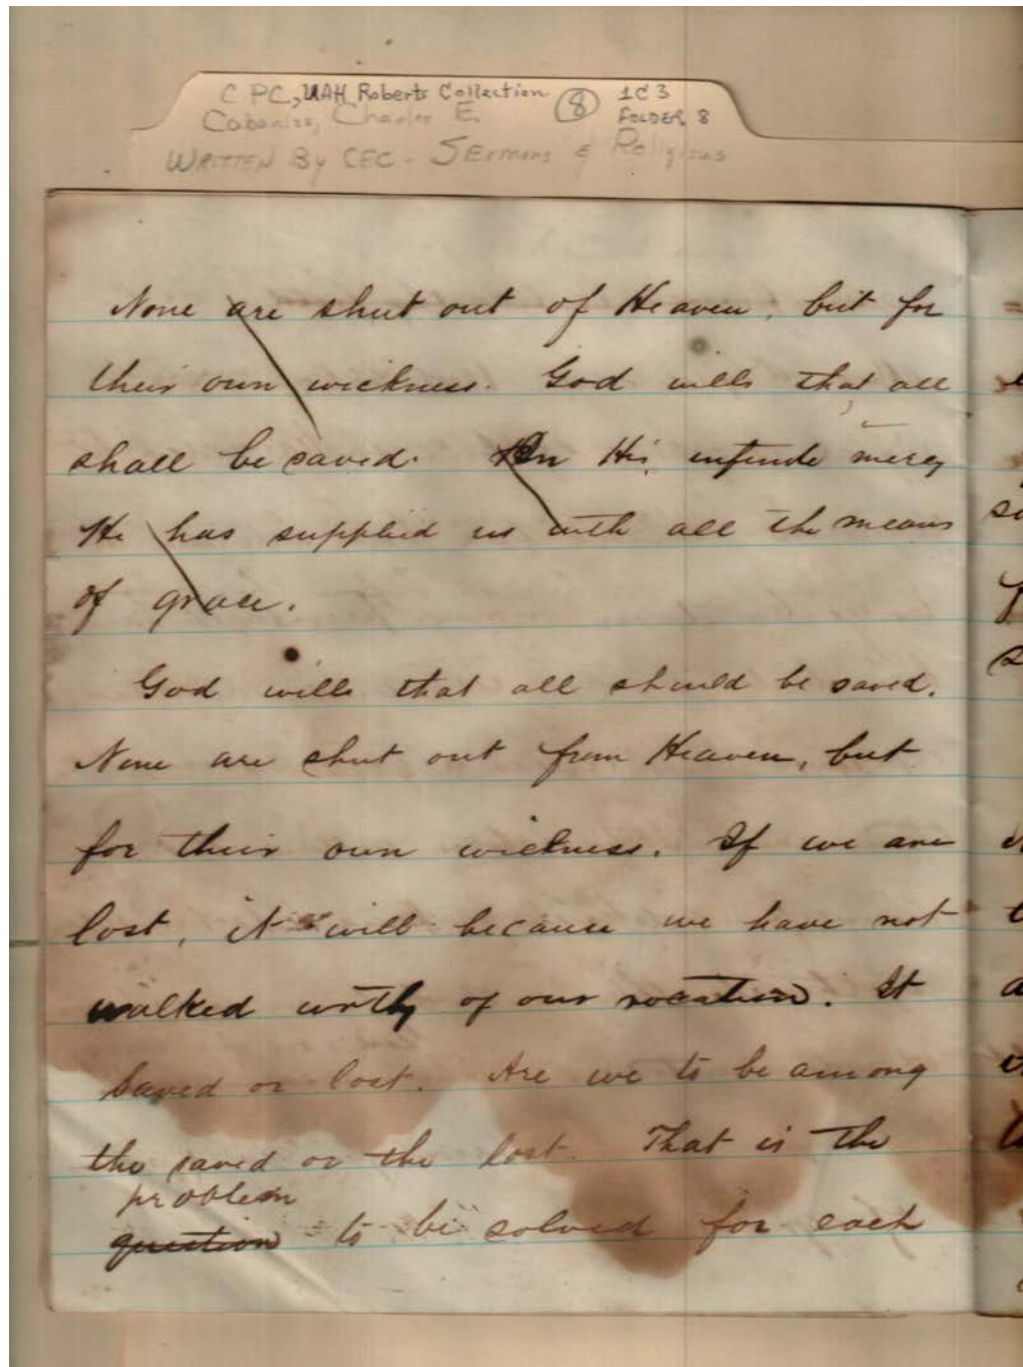 C PC, UAH Roberts Collection (8) 1C3
Cabaniss, Charles E. FOLDER 8
WRITTEN By CEC - SErmons & Religious
None are shut out of Heaven, but for
their own wickness. God wills that all
shall be saved. In His infinite mercy
He has supplied us with all the means
of grace.
God wills that all should be saved.
None are shut out from Heaven, but
for their own wickness. If we are
lost, it will because we have not
walked worthy of our vocation. It
saved or lost. Are we to be among
the saved or the lost. That is the
problem
question to be solved for each